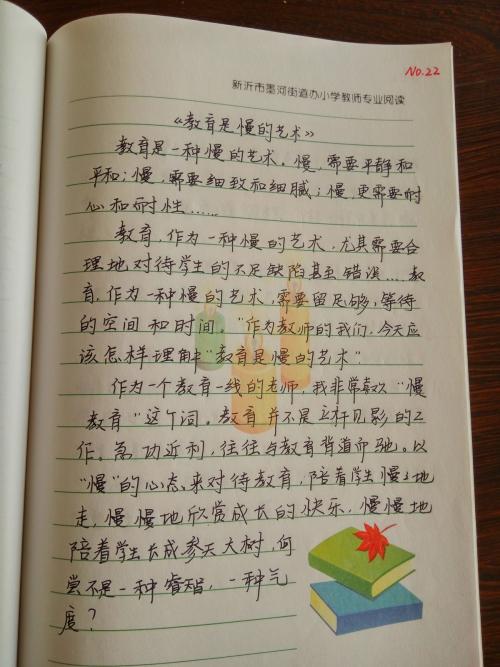 No.22
新沂市墨河街道办小学教师专业阅读
《教育是慢的艺术》
教育是一种慢的艺术。慢,需要平静和
平和;慢,需要细致和细腻;慢,更需要耐
心和耐性……
教育,作为一种慢的艺术,尤其需要合
理地对待学生的不足缺陷甚至错误……教
育,作为一种慢的艺术,需要留足够,等待
的空间和时间。"作为教师的我们,今天应
该怎样理解"教育是慢的艺术"
作为一个教育一线的老师,我非常喜欢"慢
教育"这个词。教育并不是立杆见影的工
作。急功近利,往往与教育背道而驰。以
"慢"的心态来对待教育,陪着学生慢慢地
走,慢慢地欣赏成长的快乐,慢慢地
陪着学生长成参天大树,何
尝不是一种睿智,一种气
度?